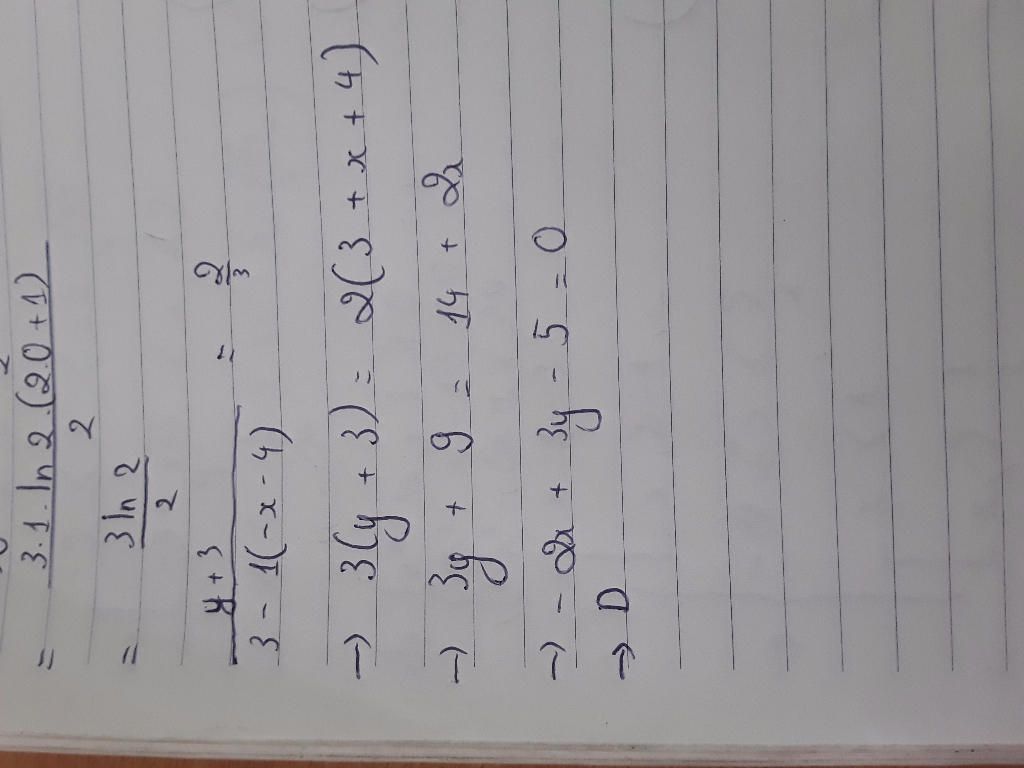 = 3.1.ln 2.(2.0+1) / 2
= 3 ln 2 / 2
y + 3 / 3 - 1(-x - 4) = 2/3
→ 3(y + 3) = 2(3 + x + 4)
→ 3y + 9 = 14 + 2x
→ - 2x + 3y - 5 = 0
→ D